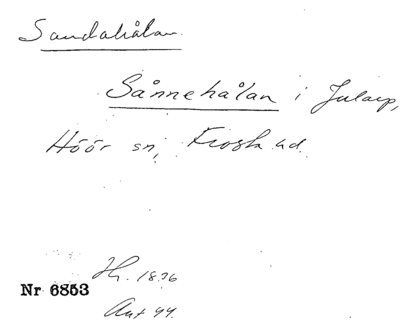 Sandahålan.
Sånnehålan i Jularp,
Höör sn, Frosta hd.
Hr. 1876
Nr 6853
Ant 44.